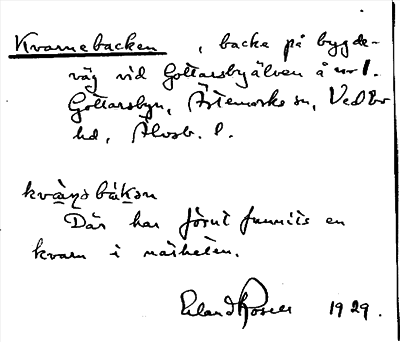 Kvarnebacken, backe på bygde-
väg vid Gottarsbyälven å nr 1.
Gottarsbyn, Ärtemarks sn, Vedbo
hd, Älvsb. l.
kvàɳsbákən
Där har förut funnits en
kvarn i närheten.
Erland Rosell 1929.